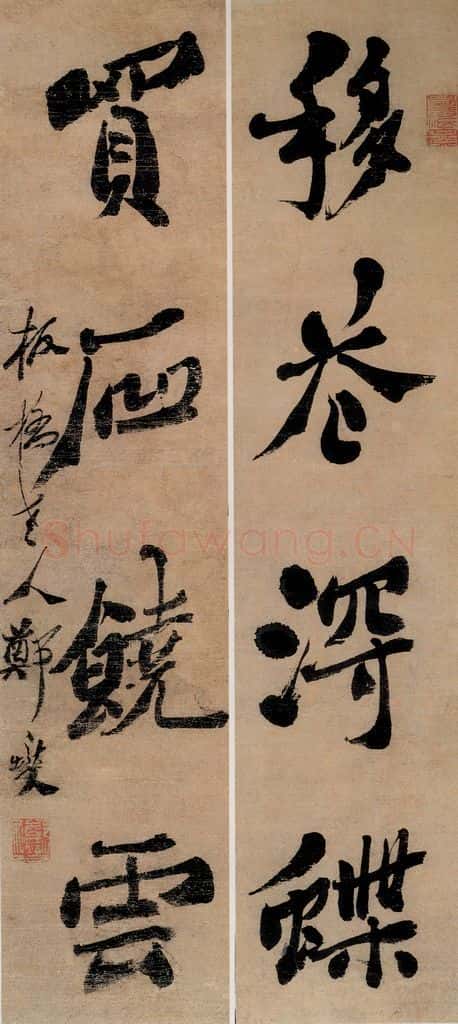 移花得蝶
買石饒雲
板橋老人鄭燮
Shufawang.CN